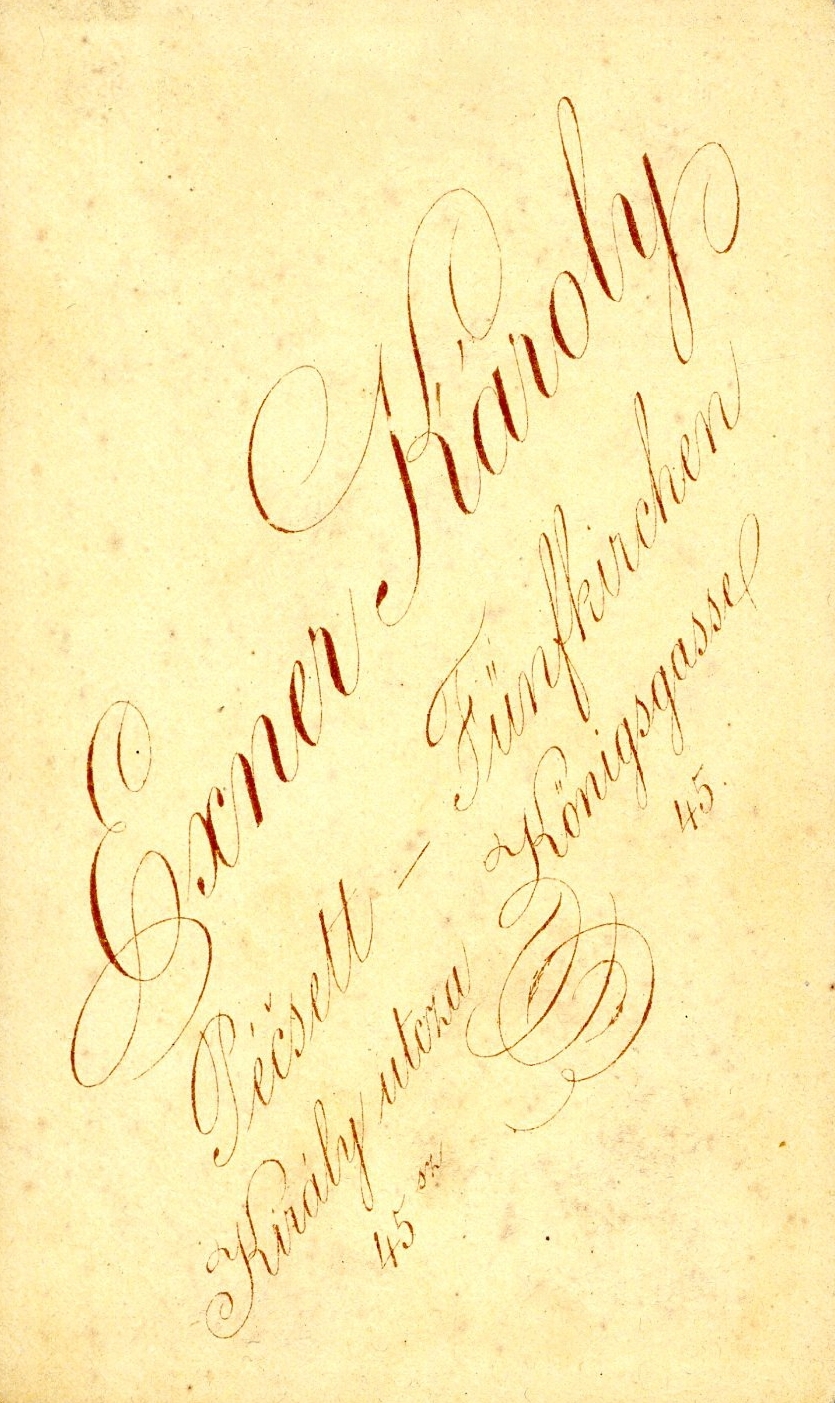 Exner Károly
Pécsett – Fünfkirchen
Király utcza Königsgasse
45 sz 45.